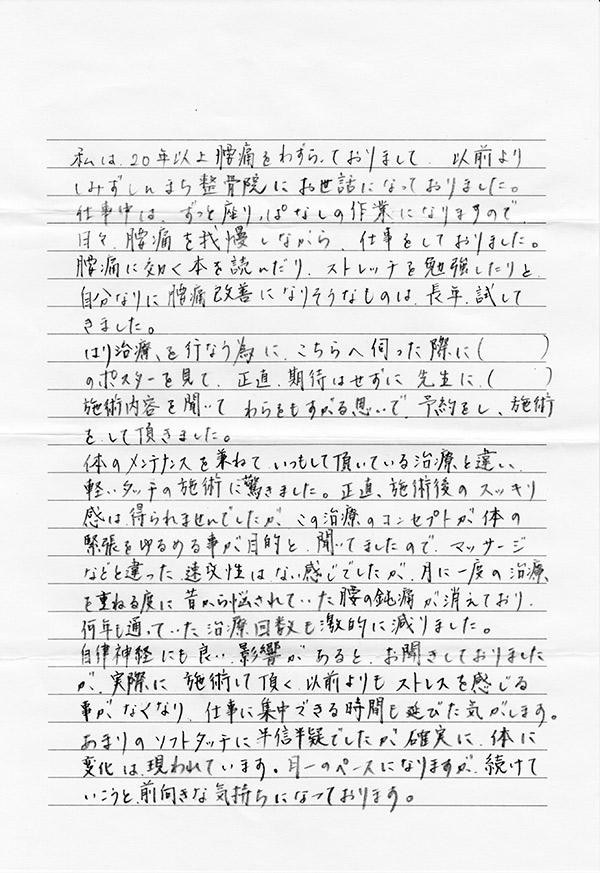 私は、20年以上腰痛をわずらっておりまして、以前より
しみずしんまち整骨院にお世話になっておりました。
仕事中は、ずっと座りっぱなしの作業になりますので、
日々、腰痛を我慢しながら、仕事をしておりました。
腰痛に効く本を読んだり、ストレッチを勉強したりと、
自分なりに腰痛改善になりそうなものは、長年、試して
きました。
はり治療、を行なう為に、こちらへ伺った際に(　　　)
のポスターを見て、正直、期待はせずに先生に、(　　　)
施術内容を聞いて わらをもすがる思いで、予約をし、施術
を、して頂きました。
体のメンテナンスを兼ねて、いつもして頂いている治療と違い、
軽いタッチの施術に驚きました。正直、施術後のスッキリ
感は、得られませんでしたが、この治療のコンセプトが体の
緊張をゆるめる事が目的と、聞いてましたので、マッサージ
などと違った、速攻性はない感じでしたが、月に一度の治療、
を重ねる度に昔から悩まされていた腰の鈍痛が消えており、
何年も通っていた治療回数も激的に減りました。
自律神経にも良い、影響があると、お聞きしておりました
が、実際に 施術して頂く、以前よりもストレスを感じる
事がなくなり、仕事に集中できる時間も延びた気がします。
あまりのソフトタッチに半信半疑でしたが、確実に、体に
変化は、現われています。月一のペースになりますが、続けて
いこうと、前向きな気持ちになっております。